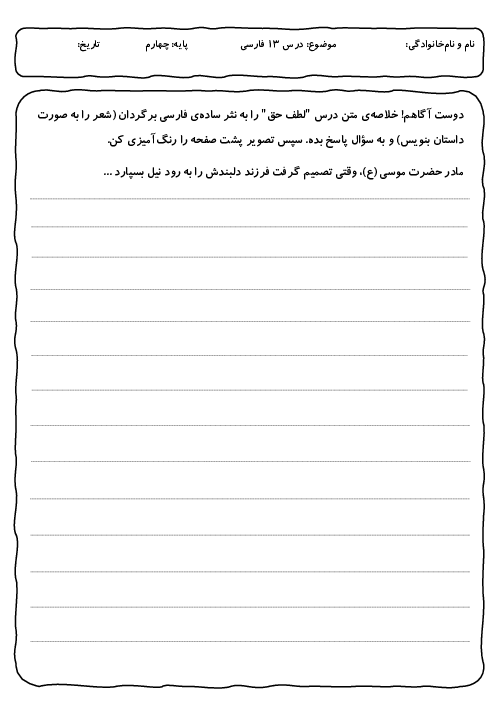 نام و نام‌خانوادگی: موضوع: درس ۱۳ فارسی پایه: چهارم تاریخ:
دوست آگاهم! خلاصه‌ی متن درس "لطف حق" را به نثر ساده‌ی فارسی برگردان (شعر را به صورت
داستان بنویس) و به سؤال پاسخ بده. سپس تصویر پشت صفحه را رنگ‌آمیزی کن.
مادر حضرت موسی (ع)، وقتی تصمیم گرفت فرزند دلبندش را به رود نیل بسپارد ...